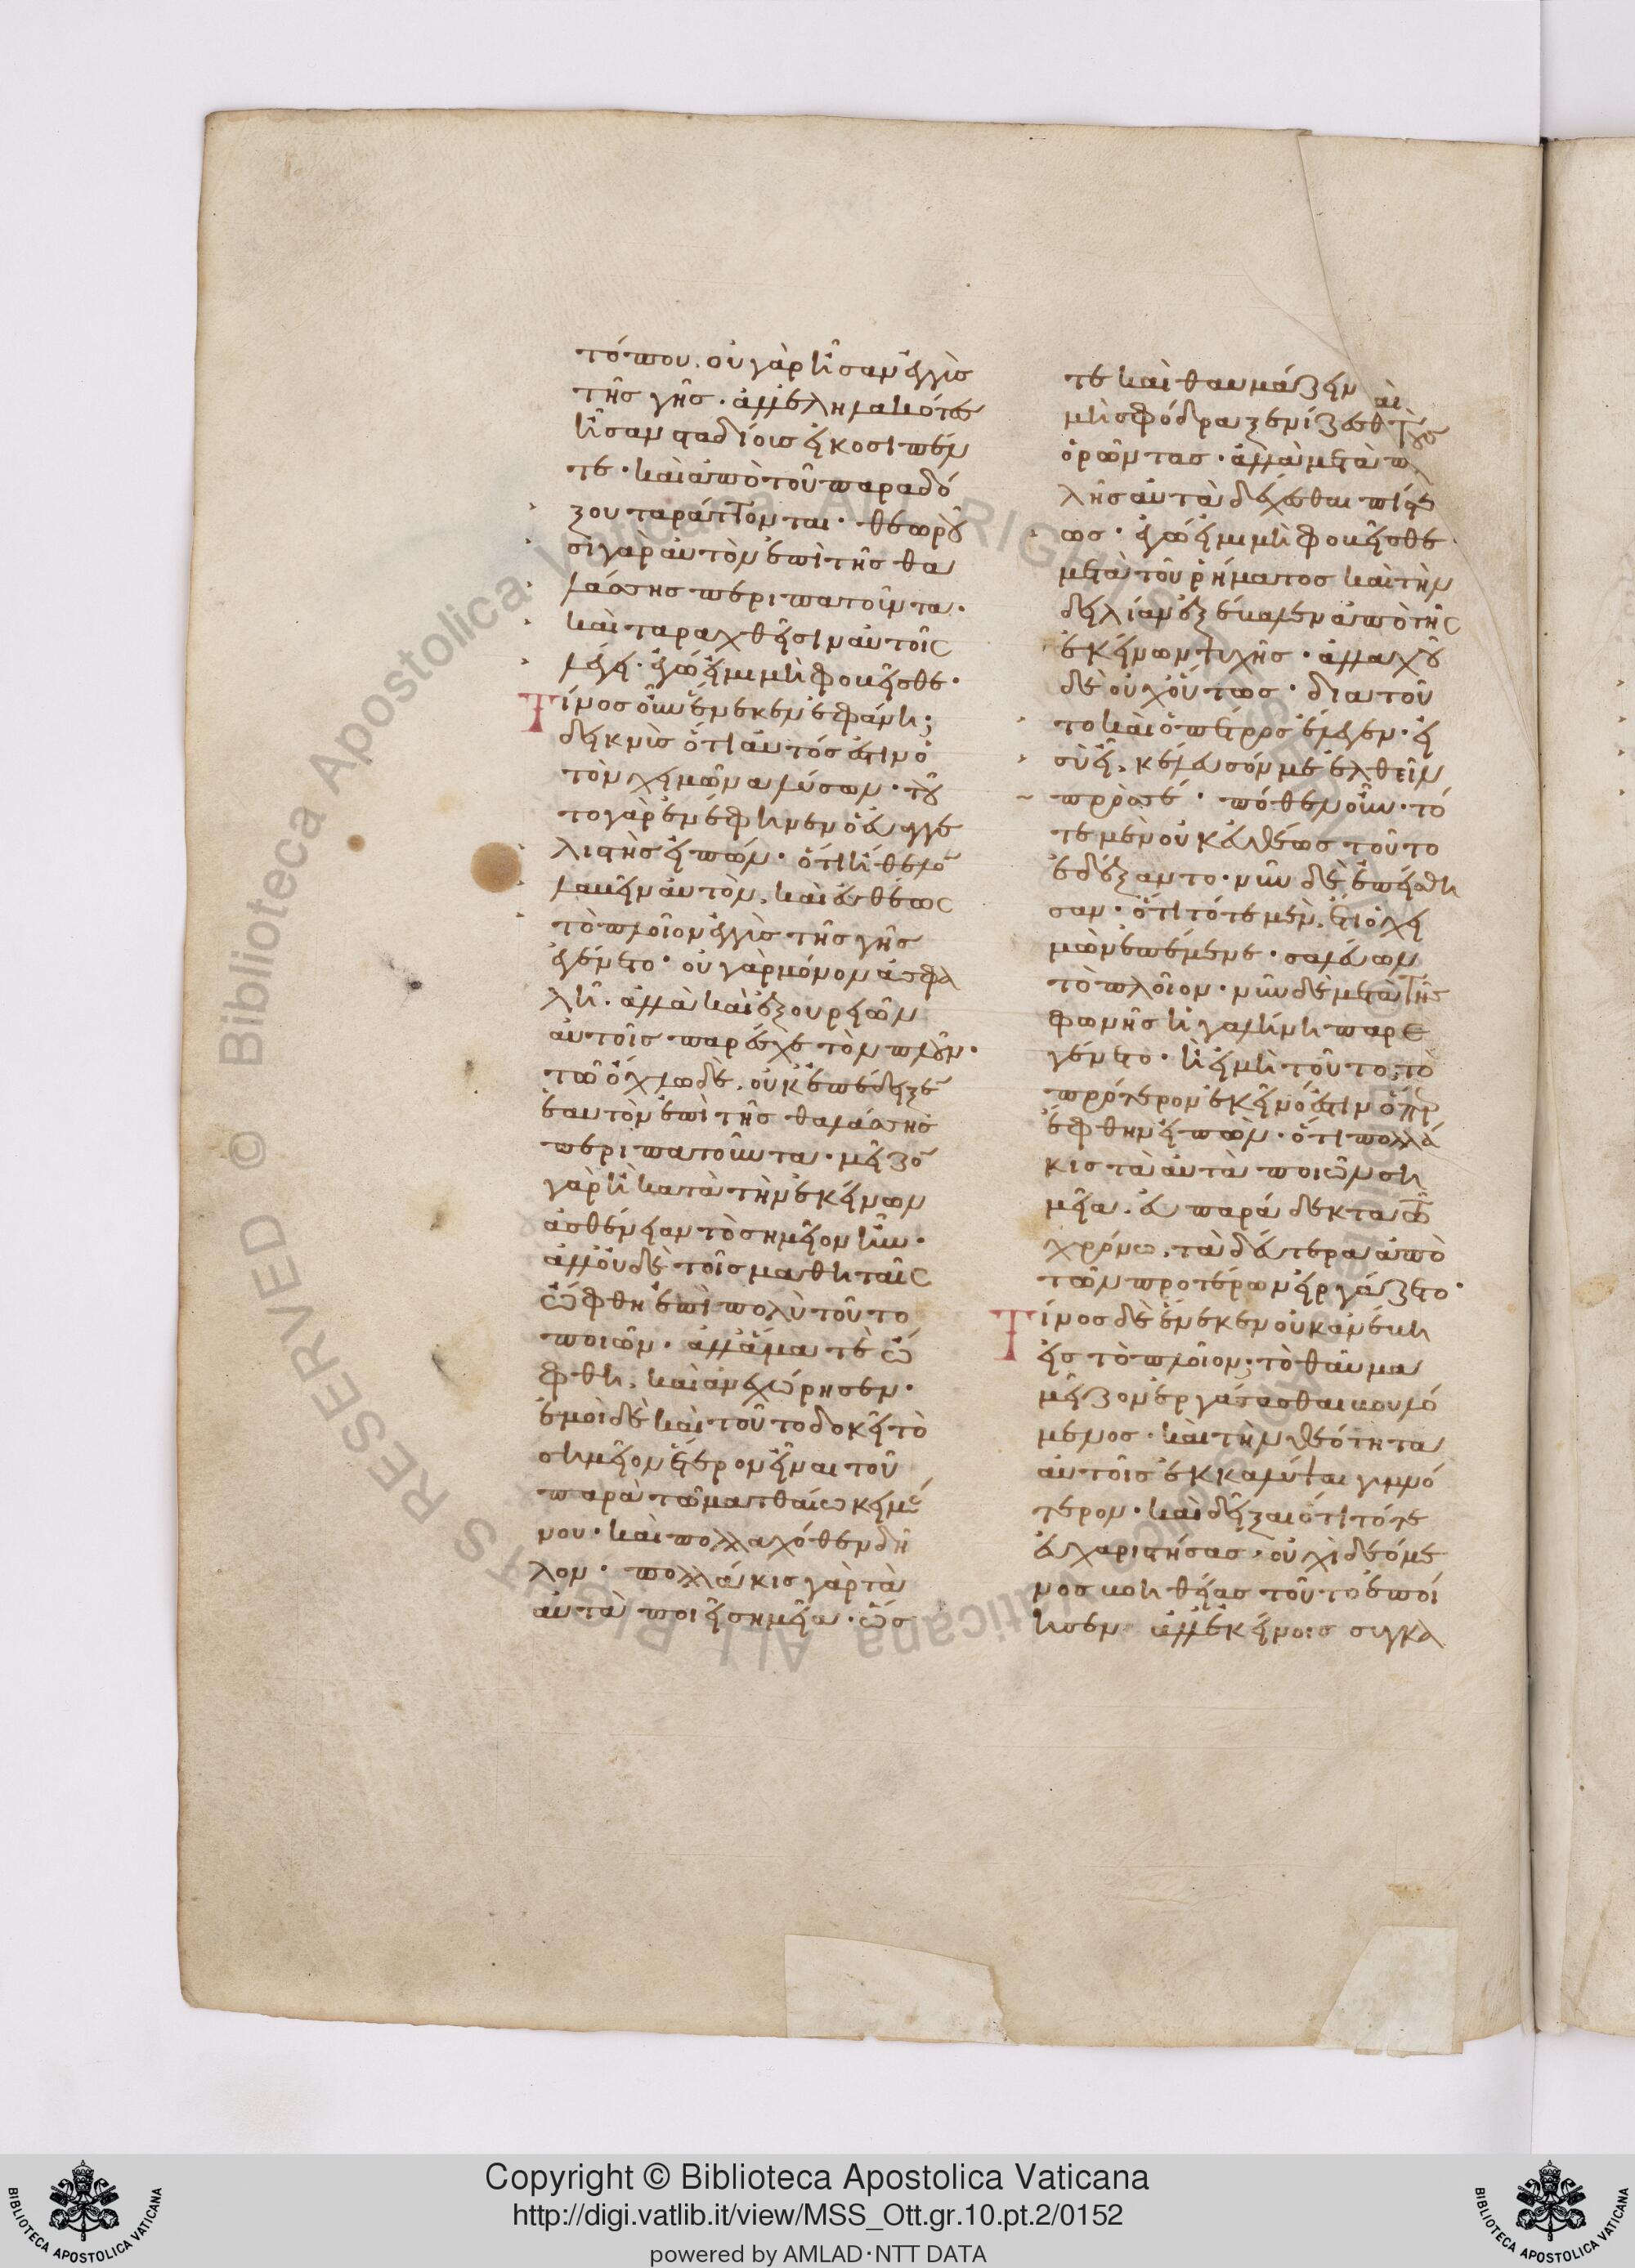 τόπου. οὐ γὰρ ἦσαν ἐγγὺς
τῆς γῆς. ἀλλ ἐληλακότες
ἦσαν σταδίους εἴκοσι πέν
τε. καὶ ἀπὸ τοῦ παραδό
ξου ταράττονται. θεωροῦ
σι γὰρ αὐτὸν ἐπὶ τῆς θα
λάσσης περιπατοῦντα.
καὶ ταραχθεῖσιν αὐτοῖς
λέγει. ἐγώ εἰμι μὴ φοβεῖσθε.
Τίνος οὖν ἕνεκεν ἐφάνη;
δεικνὺς ὅτι αὐτός ἐστιν ὁ
τὸν χειμῶνα λύσων. τοῦ
το γὰρ ἐνέφηνεν ὁ εὐαγγε
λιστὴς εἰπών. ὅτι ἤθελον
λαβεῖν αὐτὸν, καὶ εὐθέως
τὸ πλοῖον ἐγγὺς τῆς γῆς
ἐγένετο. οὐ γὰρ μόνον ἀσφα
λῆ. ἀλλὰ καὶ ἐξ οὐρίων
αὐτοῖς παρέσχε τὸν πλοῦν.
τῶ ὄχλω δὲ, οὐκ ἐπέδειξεν
ἑαυτὸν ἐπὶ τῆς θαλάσσης
περιπατοῦντα. μεῖζον
γὰρ ἢ κατὰ τὴν ἐκείνων
ἀσθένειαν τὸ σημεῖον ἦν.
ἀλλ οὐδὲ τοῖς μαθηταῖς
ὤφθη ἐπὶ πολὺ τοῦτο
ποιῶν. ἀλλ ἅμα τὲ ὤ
φθη, καὶ ἀνεχώρησεν.
ἐμοὶ δὲ καὶ τοῦτο δοκεῖ τὸ
σημεῖον ἕτερον εἶναι τοῦ
παρὰ τῶ ματθαίω κειμέ
νου. καὶ πολλαχόθεν δῆ
λον. πολλάκις γὰρ τὰ
αὐτὰ ποιεῖ σημεῖα. ὥσ
τε καὶ θαυμάζειν
μὴ σφόδρα ξενίζεσθαι τοὺς
ὁρῶντας. ἀλλὰ μετὰ πολ
λῆς αὐτὰ δέχεσθαι πίστε
ως. ἐγώ εἰμι μὴ φοβεῖσθε.
μετὰ τοῦ ῥήματος καὶ τὴν
δειλίαν ἐξέβαλεν ἀπὸ τῆς
ἐκείνων ψυχῆς. ἀλλαχοῦ
δὲ οὐχ οὕτως. διὰ τοῦ
το καὶ ὁ πέτρος ἔλεγεν. εἰ
σὺ εἶ, κέλευσόν με ἐλθεῖν
πρὸς σέ. πόθεν οὖν. τό
τε μὲν οὐκ εὐθέως τοῦτο
ἐδέξαντο. νῦν δὲ ἐπείσθη
σαν. ὅτι τότε μὲν, ἔτι ὁ χει
μὼν ἐπέμενε. σαλεύων
τὸ πλοῖον. νῦν δὲ μετὰ τῆς
φωνῆς ἡ γαλήνη παρε
γένετο. ἢ εἰ μὴ τοῦτο, τὸ
πρότερον ἐκεῖνό ἐστιν ὅπερ
ἔφθην εἰπών. ὅτι πολλά
κις τὰ αὐτὰ ποιῶν ση
μεῖα, εὐπαράδεκτα τῶ
χρόνω, τὰ δεύτερα ἀπὸ
τῶν προτέρων εἰργάζετο.
Τίνος δὲ ἕνεκεν οὐκ ἀνέβη
εἰς τὸ πλοῖον; τὸ θαῦμα
μεῖζον ἐργάσασθαι βουλό
μενος. καὶ τὴν θεότητα
αὐτοῖς ἐκκαλύψαι γυμνό
τερον. καὶ δεῖξαι ὅτι τότε
εὐχαριστήσας. οὐχὶ δεόμε
νος βοηθείας τοῦτο ἐποί
ησεν. ἀλλ ἐκείνοις συγκα
Copyright © Biblioteca Apostolica Vaticana
http://digi.vatlib.it/view/MSS_Ott.gr.10.pt.2/0152
powered by AMLAD·NTT DATA